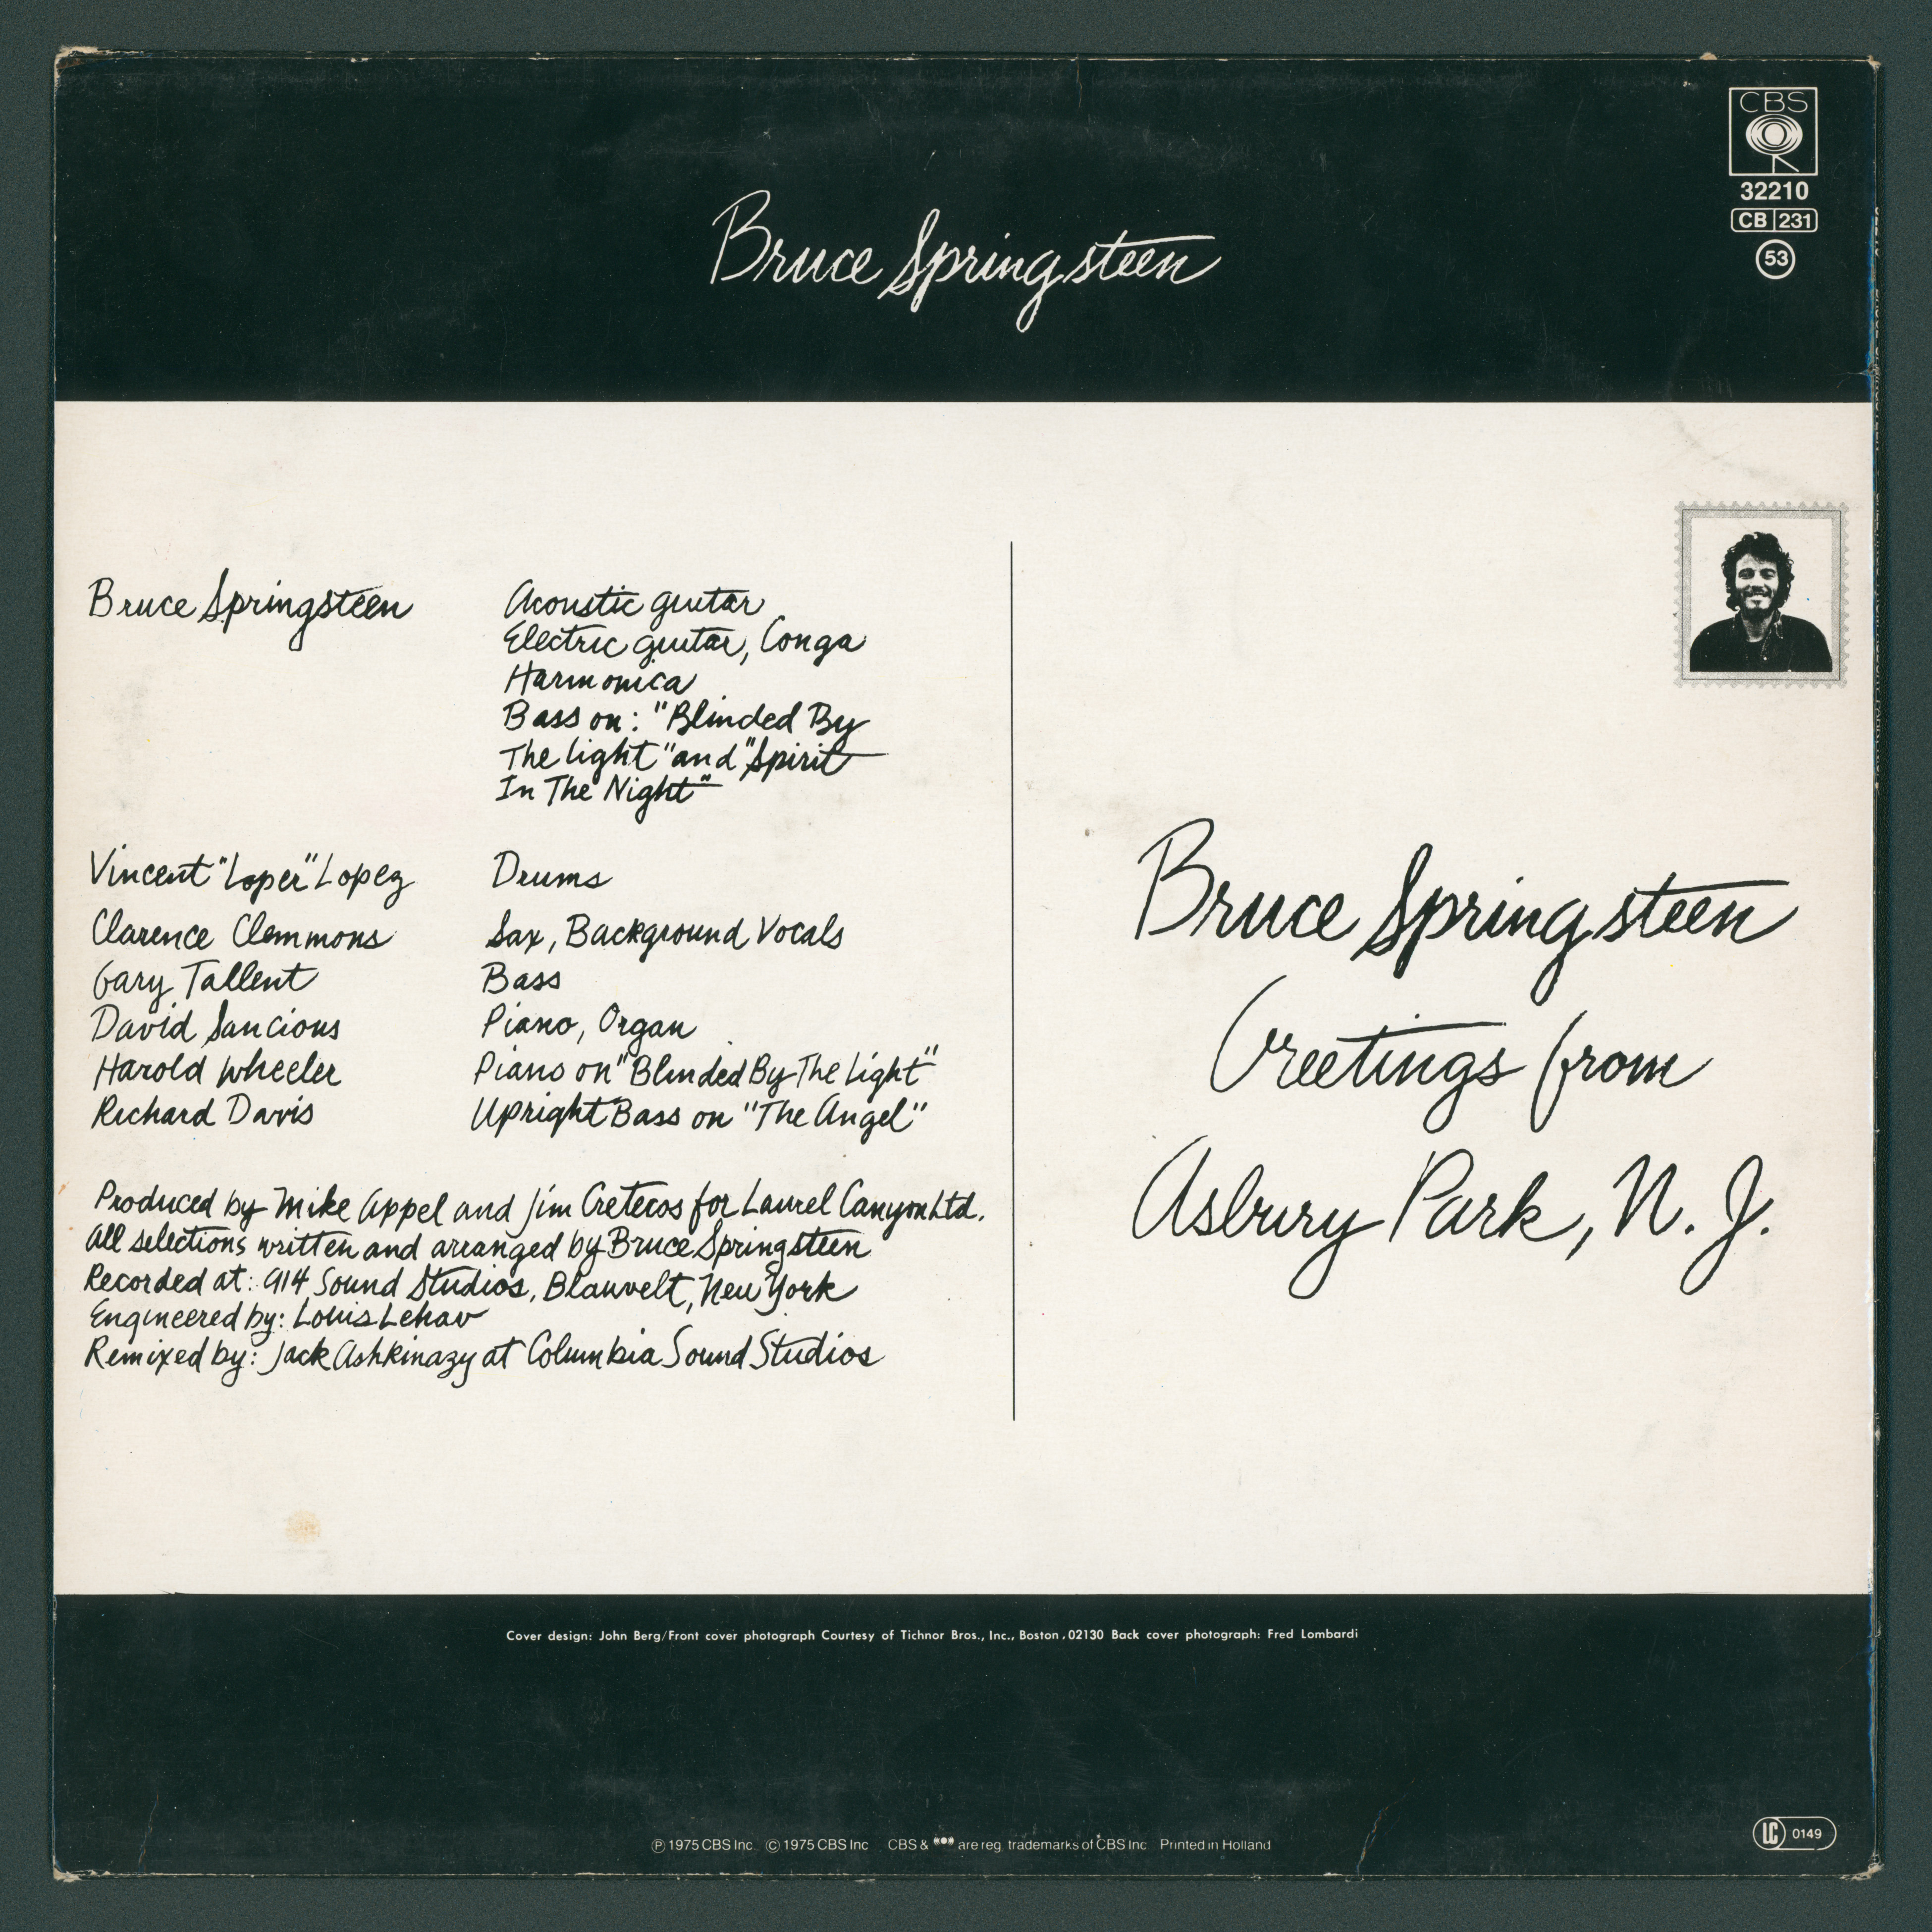 CBS
32210
CB 231
53
Bruce Springsteen
Bruce Springsteen Acoustic guitar
Electric guitar, Conga
Harmonica
Bass on: "Blinded By
The Light" and "Spirit
In The Night"
Vincent "Loper" Lopez Drums
Clarence Clemmons Sax, Background Vocals
Gary Tallent Bass
David Sancious Piano, Organ
Harold Wheeler Piano on "Blinded By The Light"
Richard Davis Upright Bass on "The Angel"
Produced by Mike Appel and Jim Cretecos for Laurel Canyon Ltd.
All selections written and arranged by Bruce Springsteen
Recorded at: 914 Sound Studios, Blauvelt, New York
Engineered by: Louis Lehav
Remixed by: Jack Ashkinazy at Columbia Sound Studios
Bruce Springsteen
Greetings from
Asbury Park, N. J.
Cover design: John Berg/Front cover photograph Courtesy of Tichnor Bros., Inc., Boston, 02130 Back cover photograph: Fred Lombardi
℗ 1975 CBS Inc. © 1975 CBS Inc CBS & are reg. trademarks of CBS Inc Printed in Holland
LC 0149